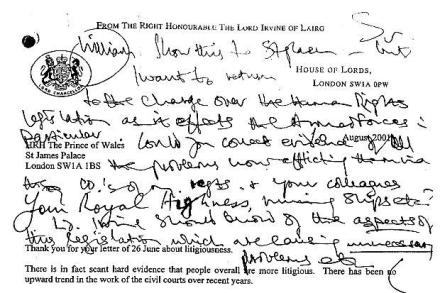 FROM THE RIGHT HONOURABLE THE LORD IRVINE OF LAIRG
William show this to St
I want to return
HOUSE OF LORDS,
LONDON SW1A 0PW
LORD CHANCELLOR
to the charge over the Human Rights
legislation as it affects the Armed Forces in
particular Could you collect evidence of all
August 2001
HRH The Prince of Wales
St James Palace
London SW1A 1BS
the problems now afflicting the
co.'s of regts. & your colleagues
Your Royal Highness, running ships etc?
Ld. Irvine should know of the aspects of
this legislation which are causing unnecessary
Thank you for your letter of 26 June about litigiousness.
problems etc
There is in fact scant hard evidence that people overall are more litigious. There has been no
upward trend in the work of the civil courts over recent years.